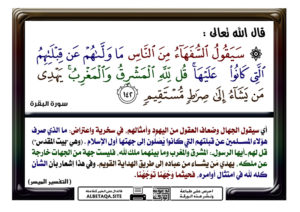 قال الله تعالى :
۞ سَيَقُولُ السُّفَهَاءُ مِنَ النَّاسِ مَا وَلَّىٰهُمْ عَن قِبْلَتِهِمُ
الَّتِي كَانُوا عَلَيْهَا ۚ قُل لِّلَّهِ الْمَشْرِقُ وَالْمَغْرِبُ ۚ يَهْدِي
مَن يَشَاءُ إِلَىٰ صِرَٰطٍ مُّسْتَقِيمٍ ١٤٢
سورة البقرة
أي سيقول الجهال وضعاف العقول من اليهود وأمثالهم، في سخرية واعتراض: ما الذي صرف
هؤلاء المسلمين عن قبلتهم التي كانوا يُصلُّون إلى جهتها أول الإسلام ، (وهي بيت المقدس)؟
قل لهم -أيها الرسول-: المشرق والمغرب وما بينهما ملك لله، فليست جهة من الجهات خارجة
عن ملكه، يهدي من يشاء من عباده إلى طريق الهداية القويم. وفي هذا إشعار بأن الشأن
كله لله في امتثال أوامره، فحيثما وَجَّهَنا تَوَجَّهْنا.
(التفسير الميسر)
ALBETAQA.SITE